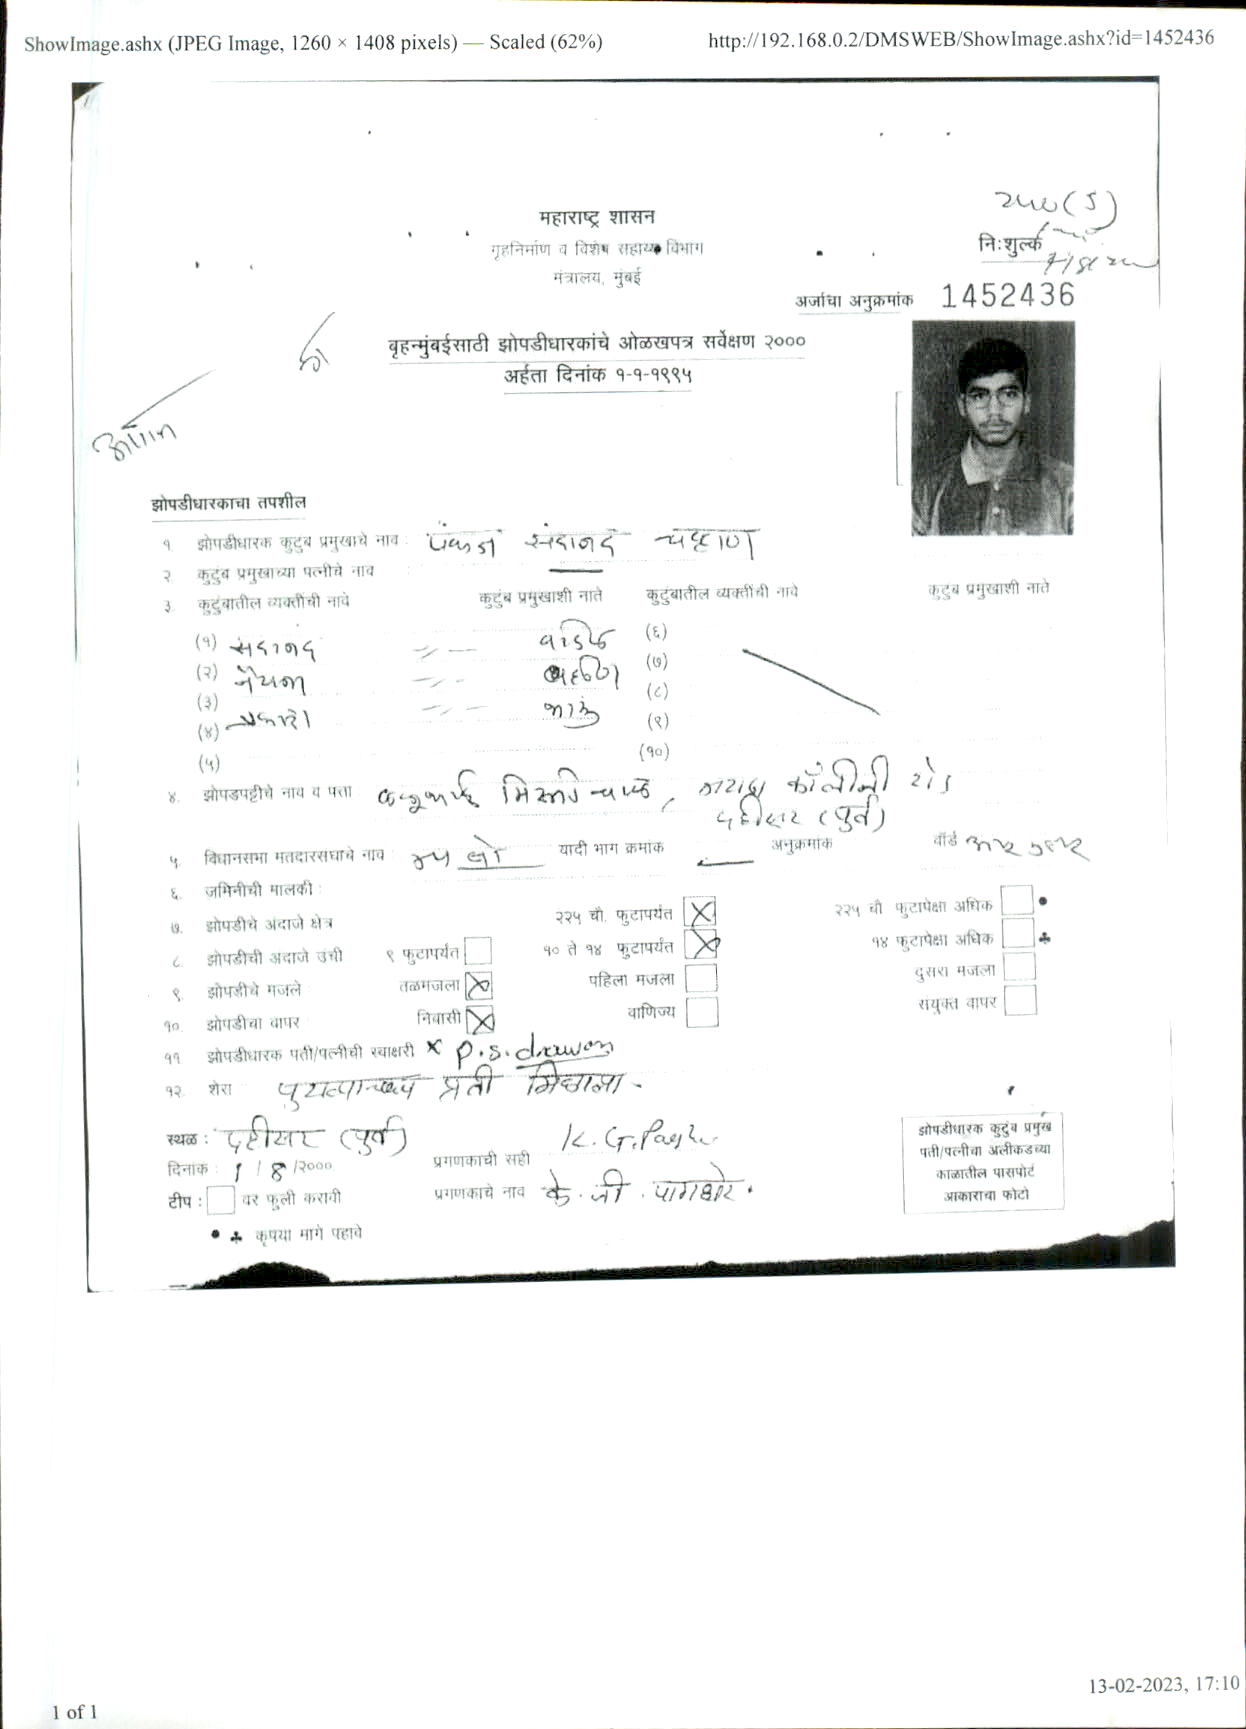 ShowImage.ashx (JPEG Image, 1260 × 1408 pixels) — Scaled (62%) http://192.168.0.2/DMSWEB/ShowImage.ashx?id=1452436
महाराष्ट्र शासन
गृहनिर्माण व विशेष सहाय्य विभाग
निःशुल्क
मंत्रालय, मुंबई
अर्जाचा अनुक्रमांक 1452436
बृहन्मुंबईसाठी झोपडीधारकांचे ओळखपत्र सर्वेक्षण २०००
अर्हता दिनांक १-१-१९९५
झोपडीधारकाचा तपशील
१ झोपडीधारक कुटुंब प्रमुखाचे नाव : पंकज सदानंद चव्हाण
२ कुटुंब प्रमुखाच्या पत्नीचे नाव
३ कुटुंबातील व्यक्तींची नावे कुटुंब प्रमुखाशी नाते कुटुंबातील व्यक्तींची नावे कुटुंब प्रमुखाशी नाते
(१) सदानंद वडिल (६)
(२) बहिण (७)
(३) भाऊ (८)
(४) प्रकाश (९)
(५) (१०)
४. झोपडपट्टीचे नाव व पत्ता कॉलीनी रोड
दहीसर (पुर्व)
५ विधानसभा मतदारसंघाचे नाव : यादी भाग क्रमांक अनुक्रमांक वॉर्ड
६. जमिनीची मालकी :
७. झोपडीचे अंदाजे क्षेत्र २२५ चौ. फुटापर्यंत २२५ चौ फुटापेक्षा अधिक
८. झोपडीची अंदाजे उंची ९ फुटापर्यंत १० ते १४ फुटापर्यंत १४ फुटापेक्षा अधिक
९. झोपडीचे मजले तळमजला पहिला मजला दुसरा मजला
१० झोपडीचा वापर निवासी वाणिज्य संयुक्त वापर
११ झोपडीधारक पती/पत्नीची स्वाक्षरी x
१२. शेरा प्रती मिळाला.
स्थळ : दहीसर (पुर्व)
दिनांक : 1/8/२००० प्रगणकाची सही
टीप : वर फुली करावी प्रगणकाचे नाव के. जी.
• ♣ कृपया मागे पहावे
झोपडीधारक कुटुंब प्रमुख
पती/पत्नीचा अलीकडच्या
काळातील पासपोर्ट
आकाराचा फोटो
13-02-2023, 17:10
1 of 1